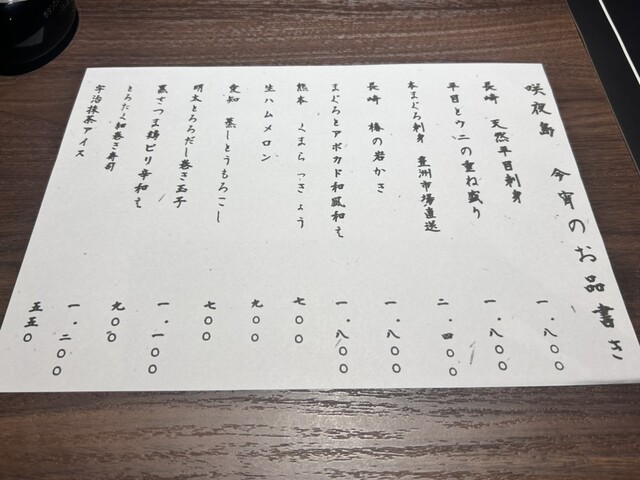 咲夜島 今宵のお品書き
長崎 天然平目刺身 一.八〇〇
平目とウニの重ね盛り 一.八〇〇
本まぐろ刺身 豊洲市場直送 二.四〇〇
長崎 椿の岩かき 一.八〇〇
まぐろとアボカド和風和え 一.八〇〇
熊本 くまらっきょう 七〇〇
生ハムメロン 九〇〇
愛知 蒸しとうもろこし 七〇〇
明太とろろだし巻き玉子 一.一〇〇
黒さつま鶏ピリ辛和え 九〇〇
とろたく細巻き寿司 一.二〇〇
宇治抹茶アイス 五五〇